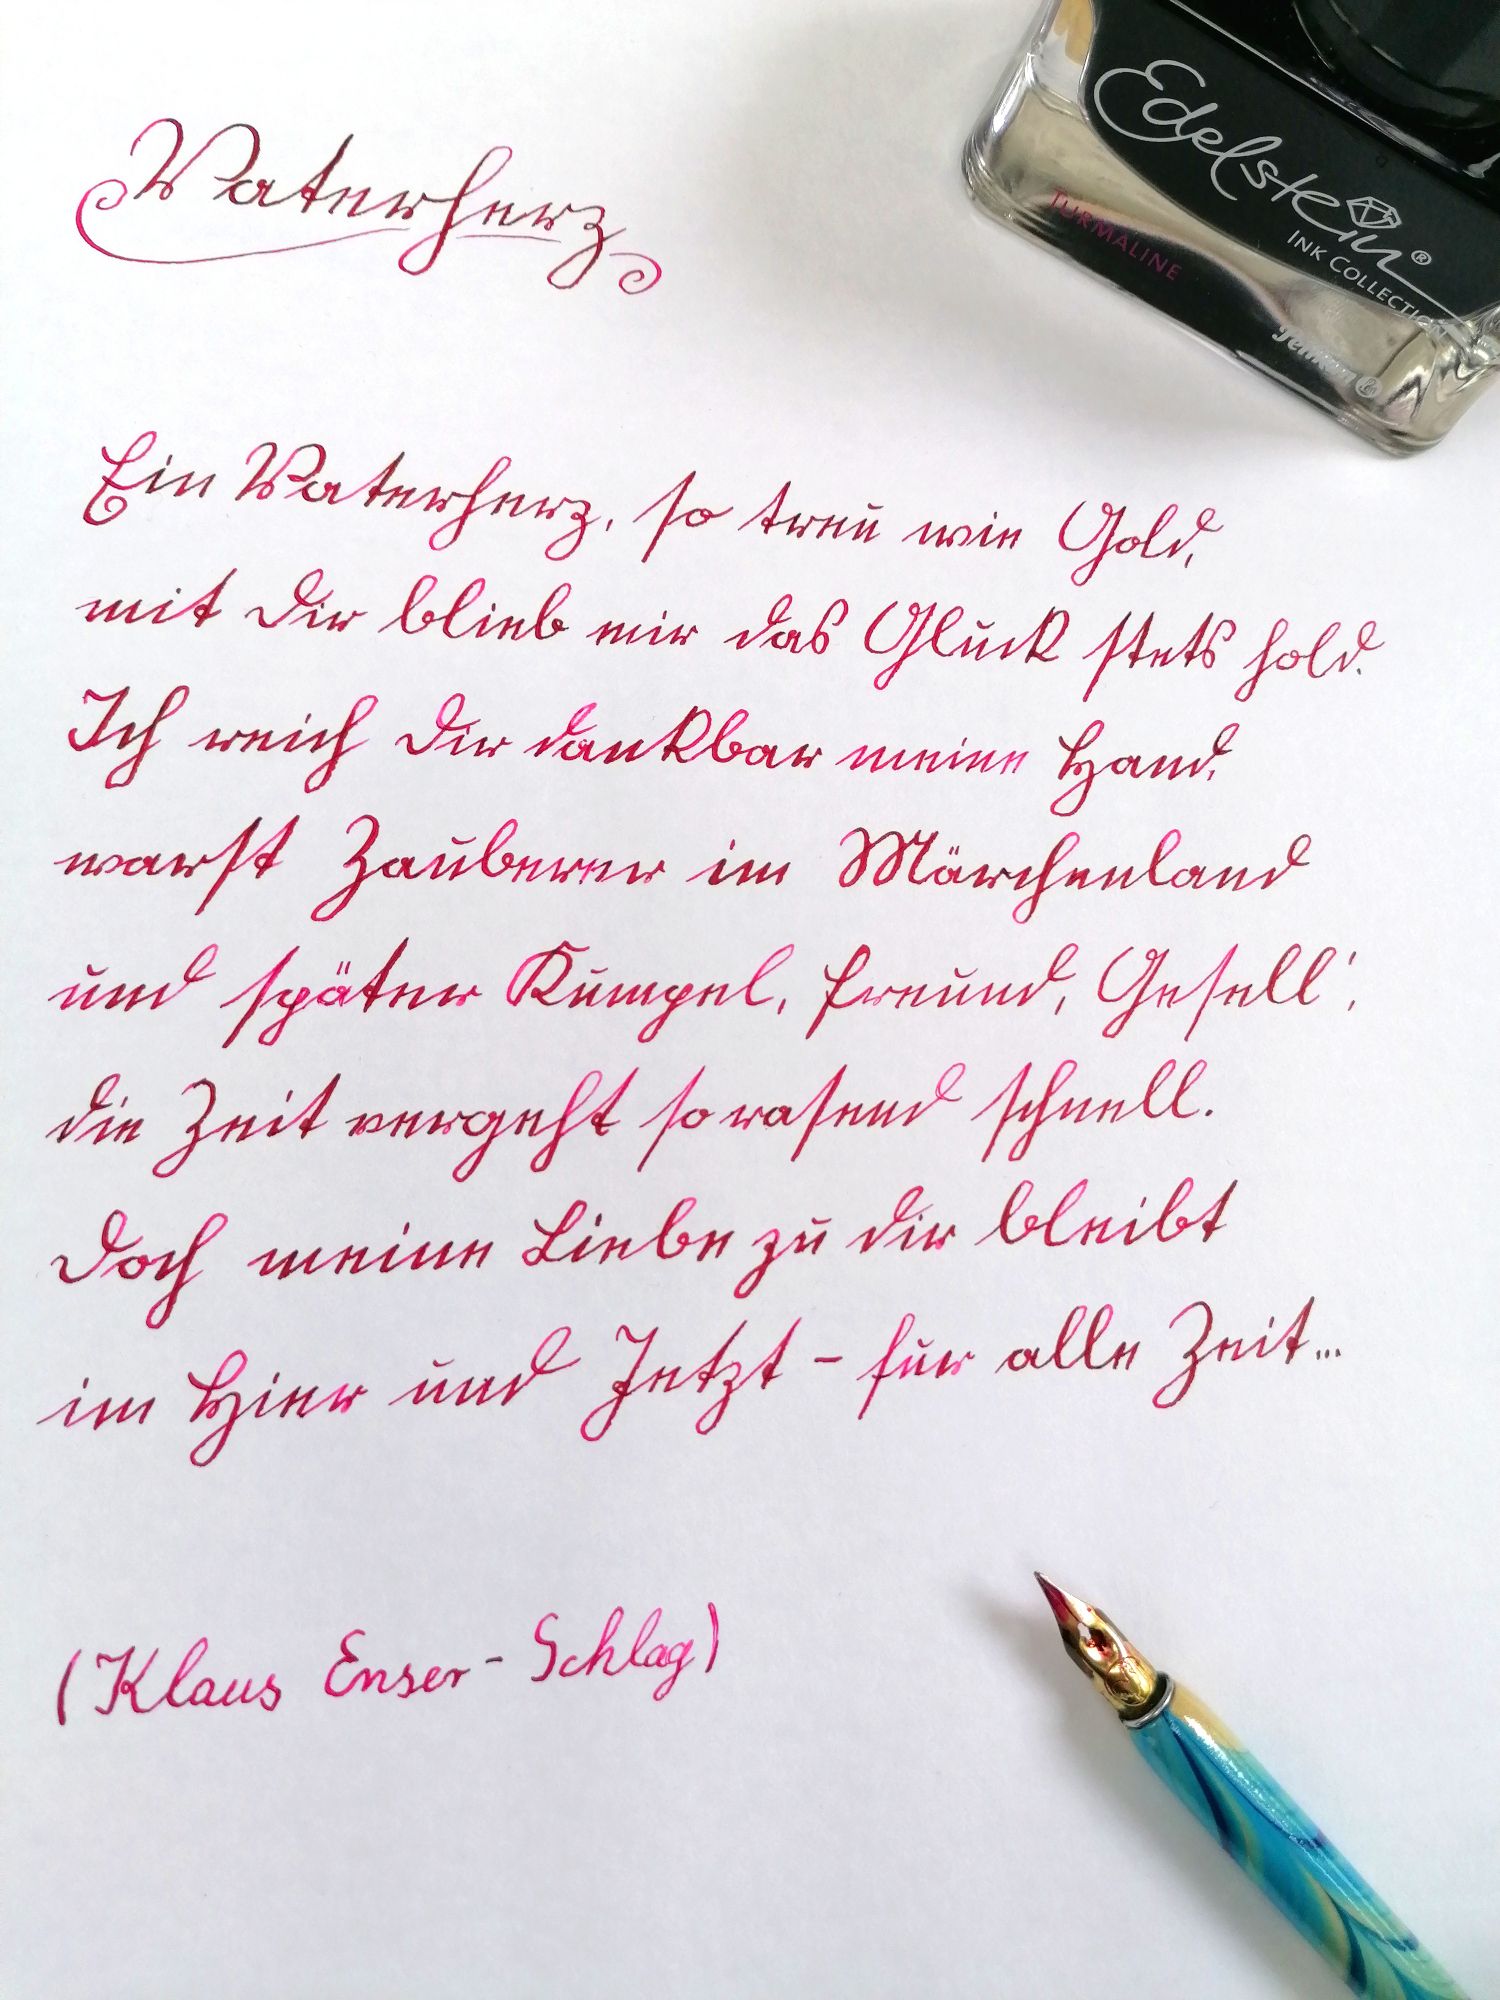 Vaterherz
Edelstein®
INK COLLECTION
TURMALINE
Pelikan
Ein Vaterherz, so treu wie Gold,
mit dir blieb mir das Glück stets hold.
Ich reich dir dankbar meine Hand,
warst Zauberer im Märchenland
und später Kumpel, Freund, Gesell',
die Zeit vergeht so rasend schnell.
Doch meine Liebe zu dir bleibt
im Hier und Jetzt – für alle Zeit...
(Klaus Enser-Schlag)